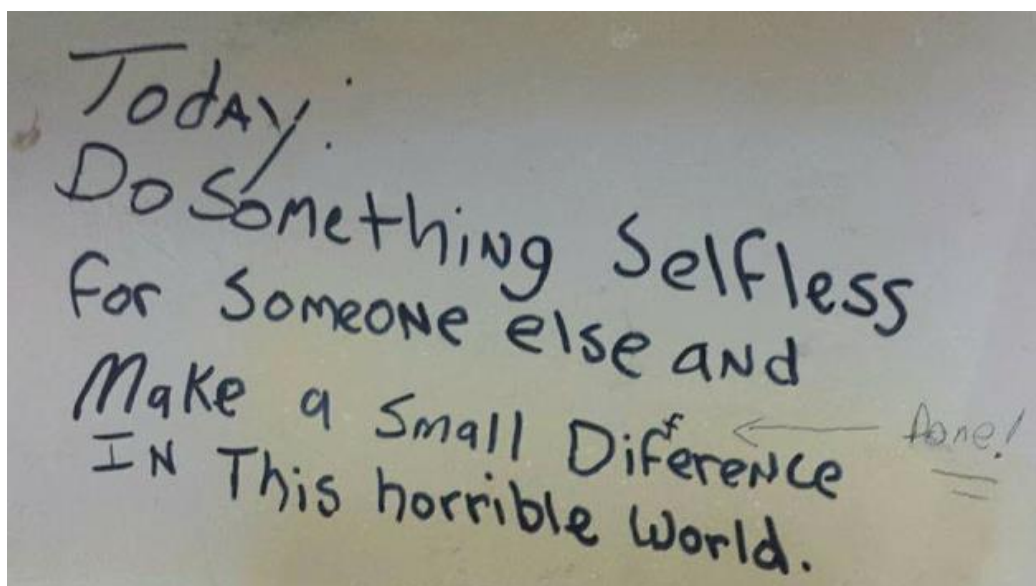 Today:
Do Something Selfless
for Someone else and
Make a Small Difference ← Done!
In This horrible World.